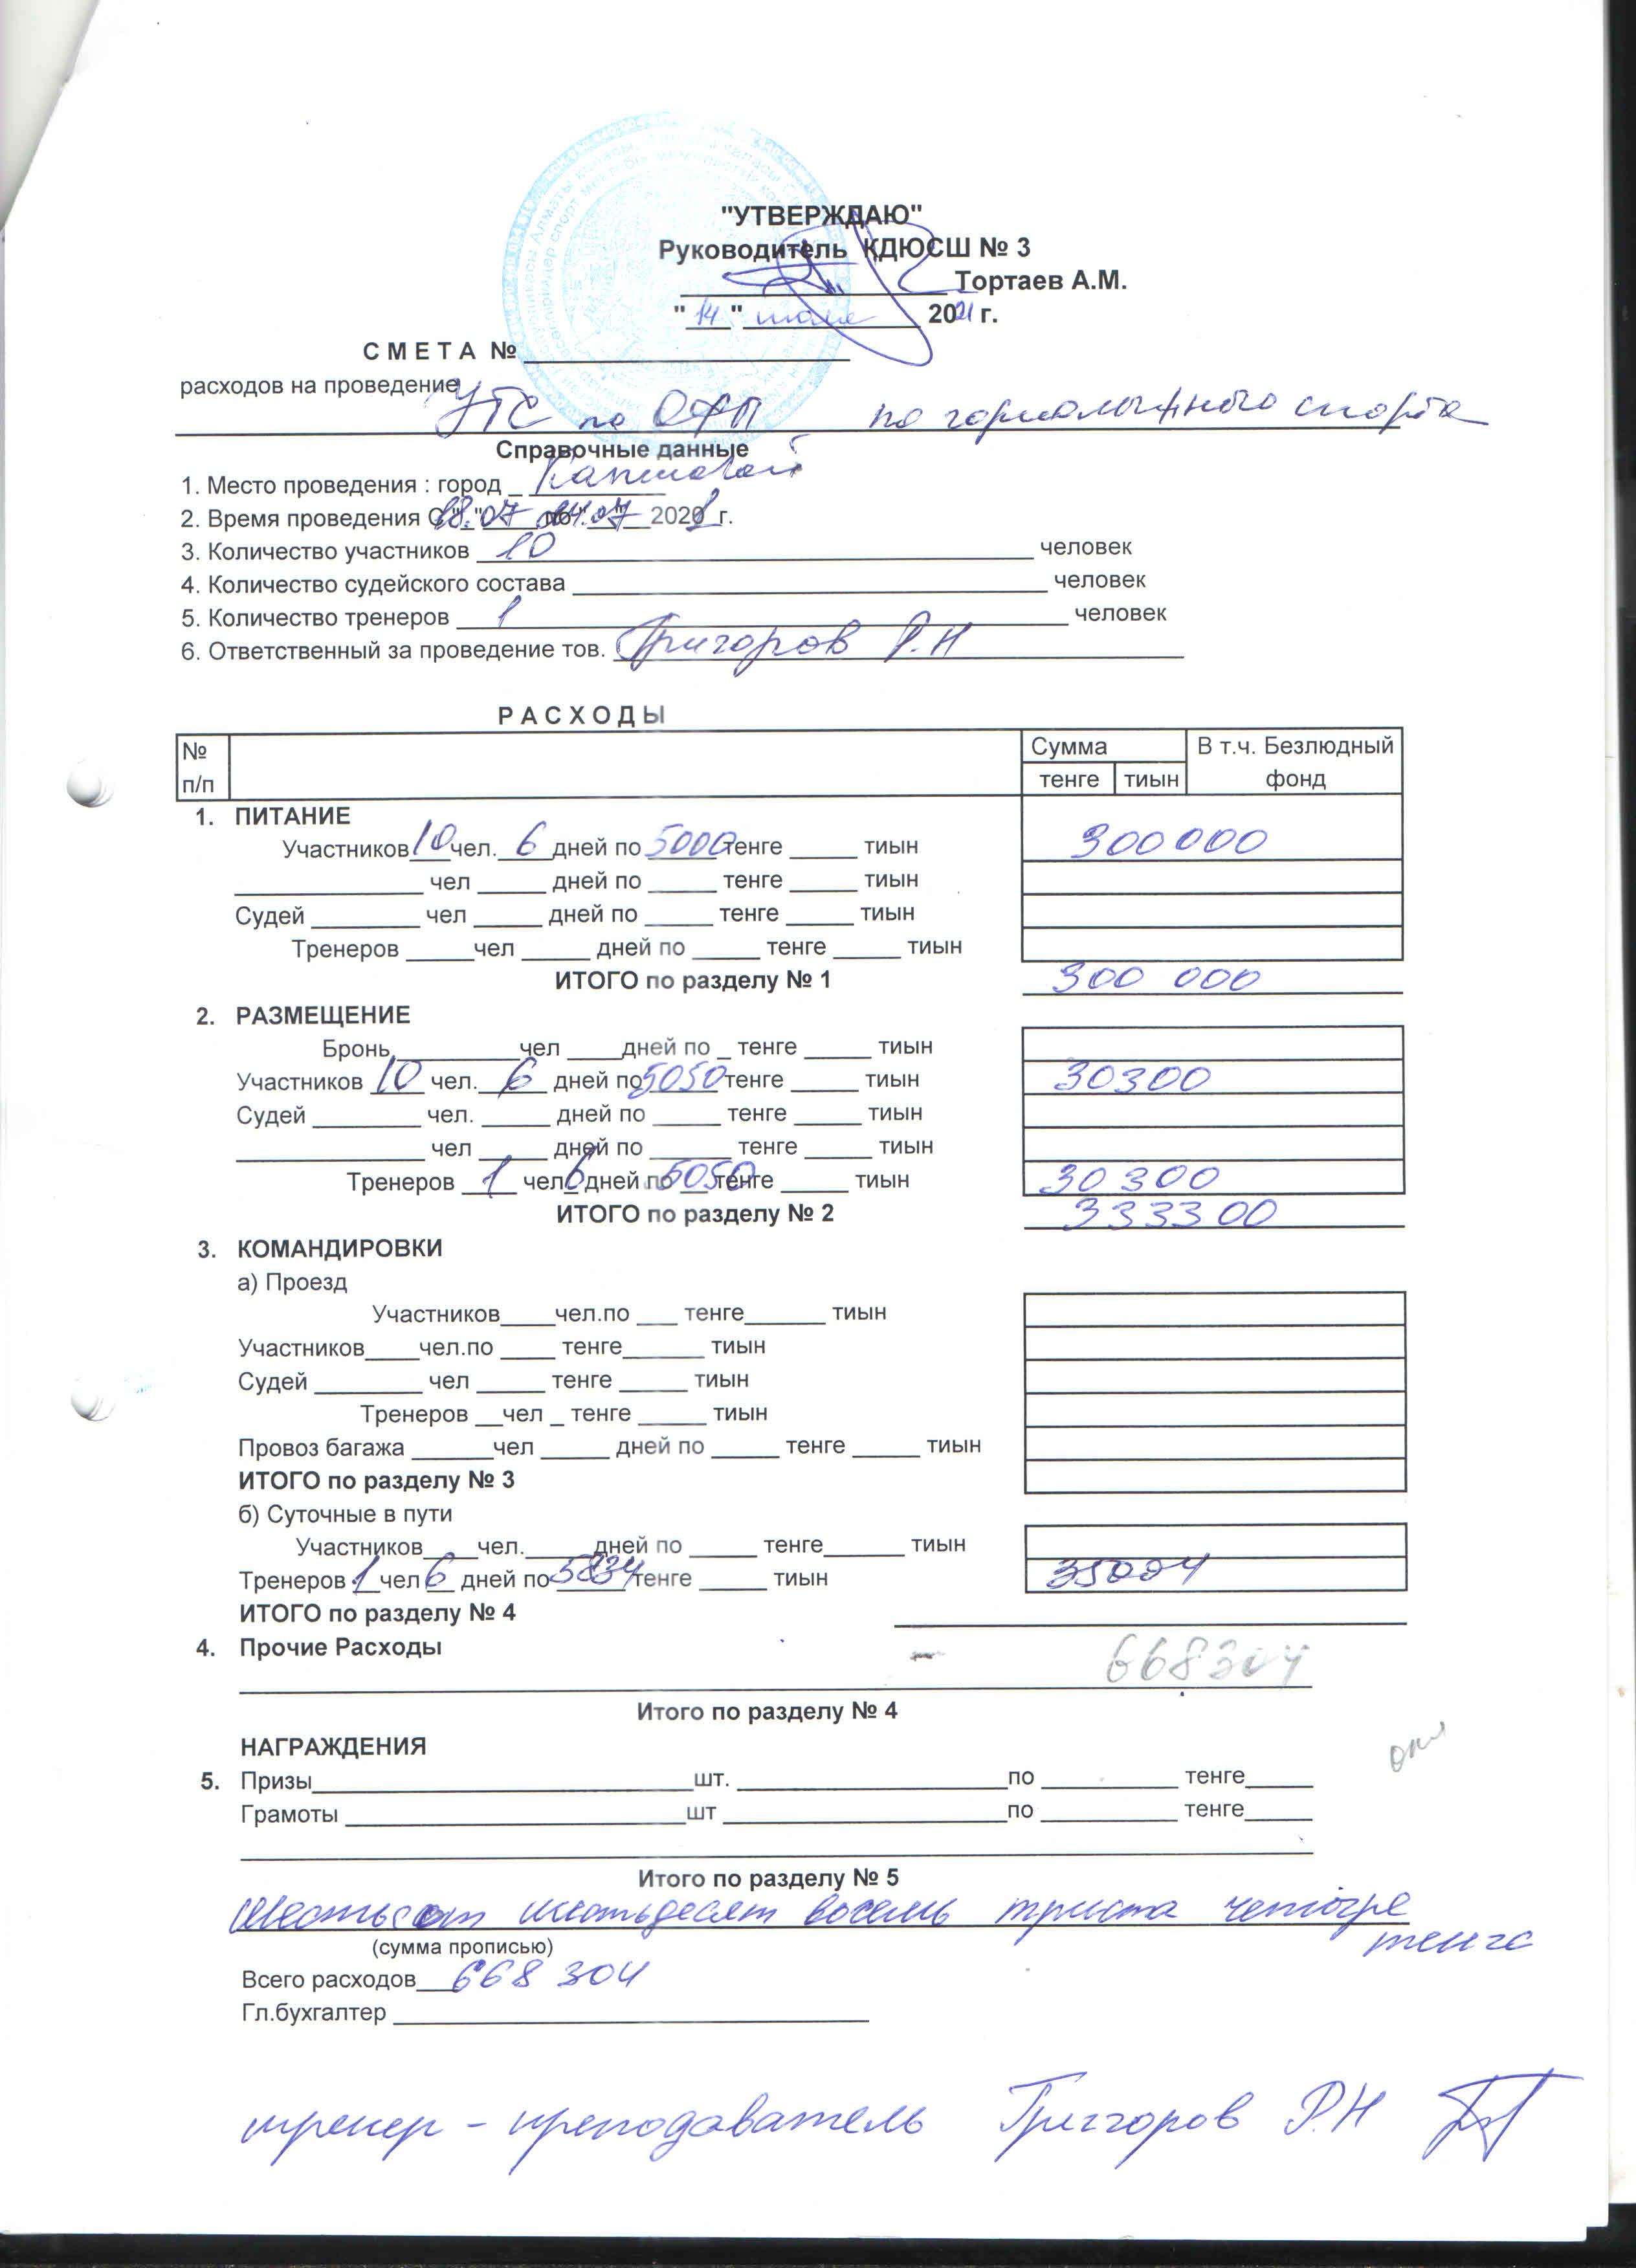 "УТВЕРЖДАЮ"
Руководитель КДЮСШ № 3
____________ Тортаев А.М.
"14" июля 2021 г.
С М Е Т А №
расходов на проведение
УТС по ОФП по горнолыжного спорта
Справочные данные
1. Место проведения : город Капшагай
2. Время проведения С "18.07 по 24.07 2021 г.
3. Количество участников 10 человек
4. Количество судейского состава ____ человек
5. Количество тренеров 1 человек
6. Ответственный за проведение тов. Григоров Р.Н
Р А С Х О Д Ы
№ п/п Сумма В т.ч. Безлюдный фонд
тенге тиын
1. ПИТАНИЕ
Участников 10 чел. 6 дней по 5000 тенге ____ тиын 300000
____ чел ____ дней по ____ тенге ____ тиын
Судей ____ чел ____ дней по ____ тенге ____ тиын
Тренеров ____ чел ____ дней по ____ тенге ____ тиын
ИТОГО по разделу № 1 300 000
2. РАЗМЕЩЕНИЕ
Бронь ____ чел ____ дней по _ тенге ____ тиын
Участников 10 чел. 6 дней по 5050 тенге ____ тиын 30300
Судей ____ чел. ____ дней по ____ тенге ____ тиын
____ чел ____ дней по ____ тенге ____ тиын
Тренеров 1 чел 6 дней по 5050 тенге ____ тиын 30 300
ИТОГО по разделу № 2 333300
3. КОМАНДИРОВКИ
а) Проезд
Участников____чел.по ___ тенге______ тиын
Участников____чел.по ____ тенге______ тиын
Судей ____ чел ____ тенге ____ тиын
Тренеров __чел _ тенге ____ тиын
Провоз багажа ____ чел ____ дней по ____ тенге ____ тиын
ИТОГО по разделу № 3
б) Суточные в пути
Участников____чел.____дней по ____ тенге____ тиын
Тренеров 1 чел 6 дней по 5834 тенге ____ тиын 35004
ИТОГО по разделу № 4
4. Прочие Расходы – 668304
Итого по разделу № 4
НАГРАЖДЕНИЯ
5. Призы____шт. ____по ____ тенге____
Грамоты ____шт ____по ____ тенге____
Итого по разделу № 5
Шестьсот шестьдесят восемь триста четыре
тенге
(сумма прописью)
Всего расходов 668 304
Гл.бухгалтер
тренер - преподаватель Григоров Р.Н